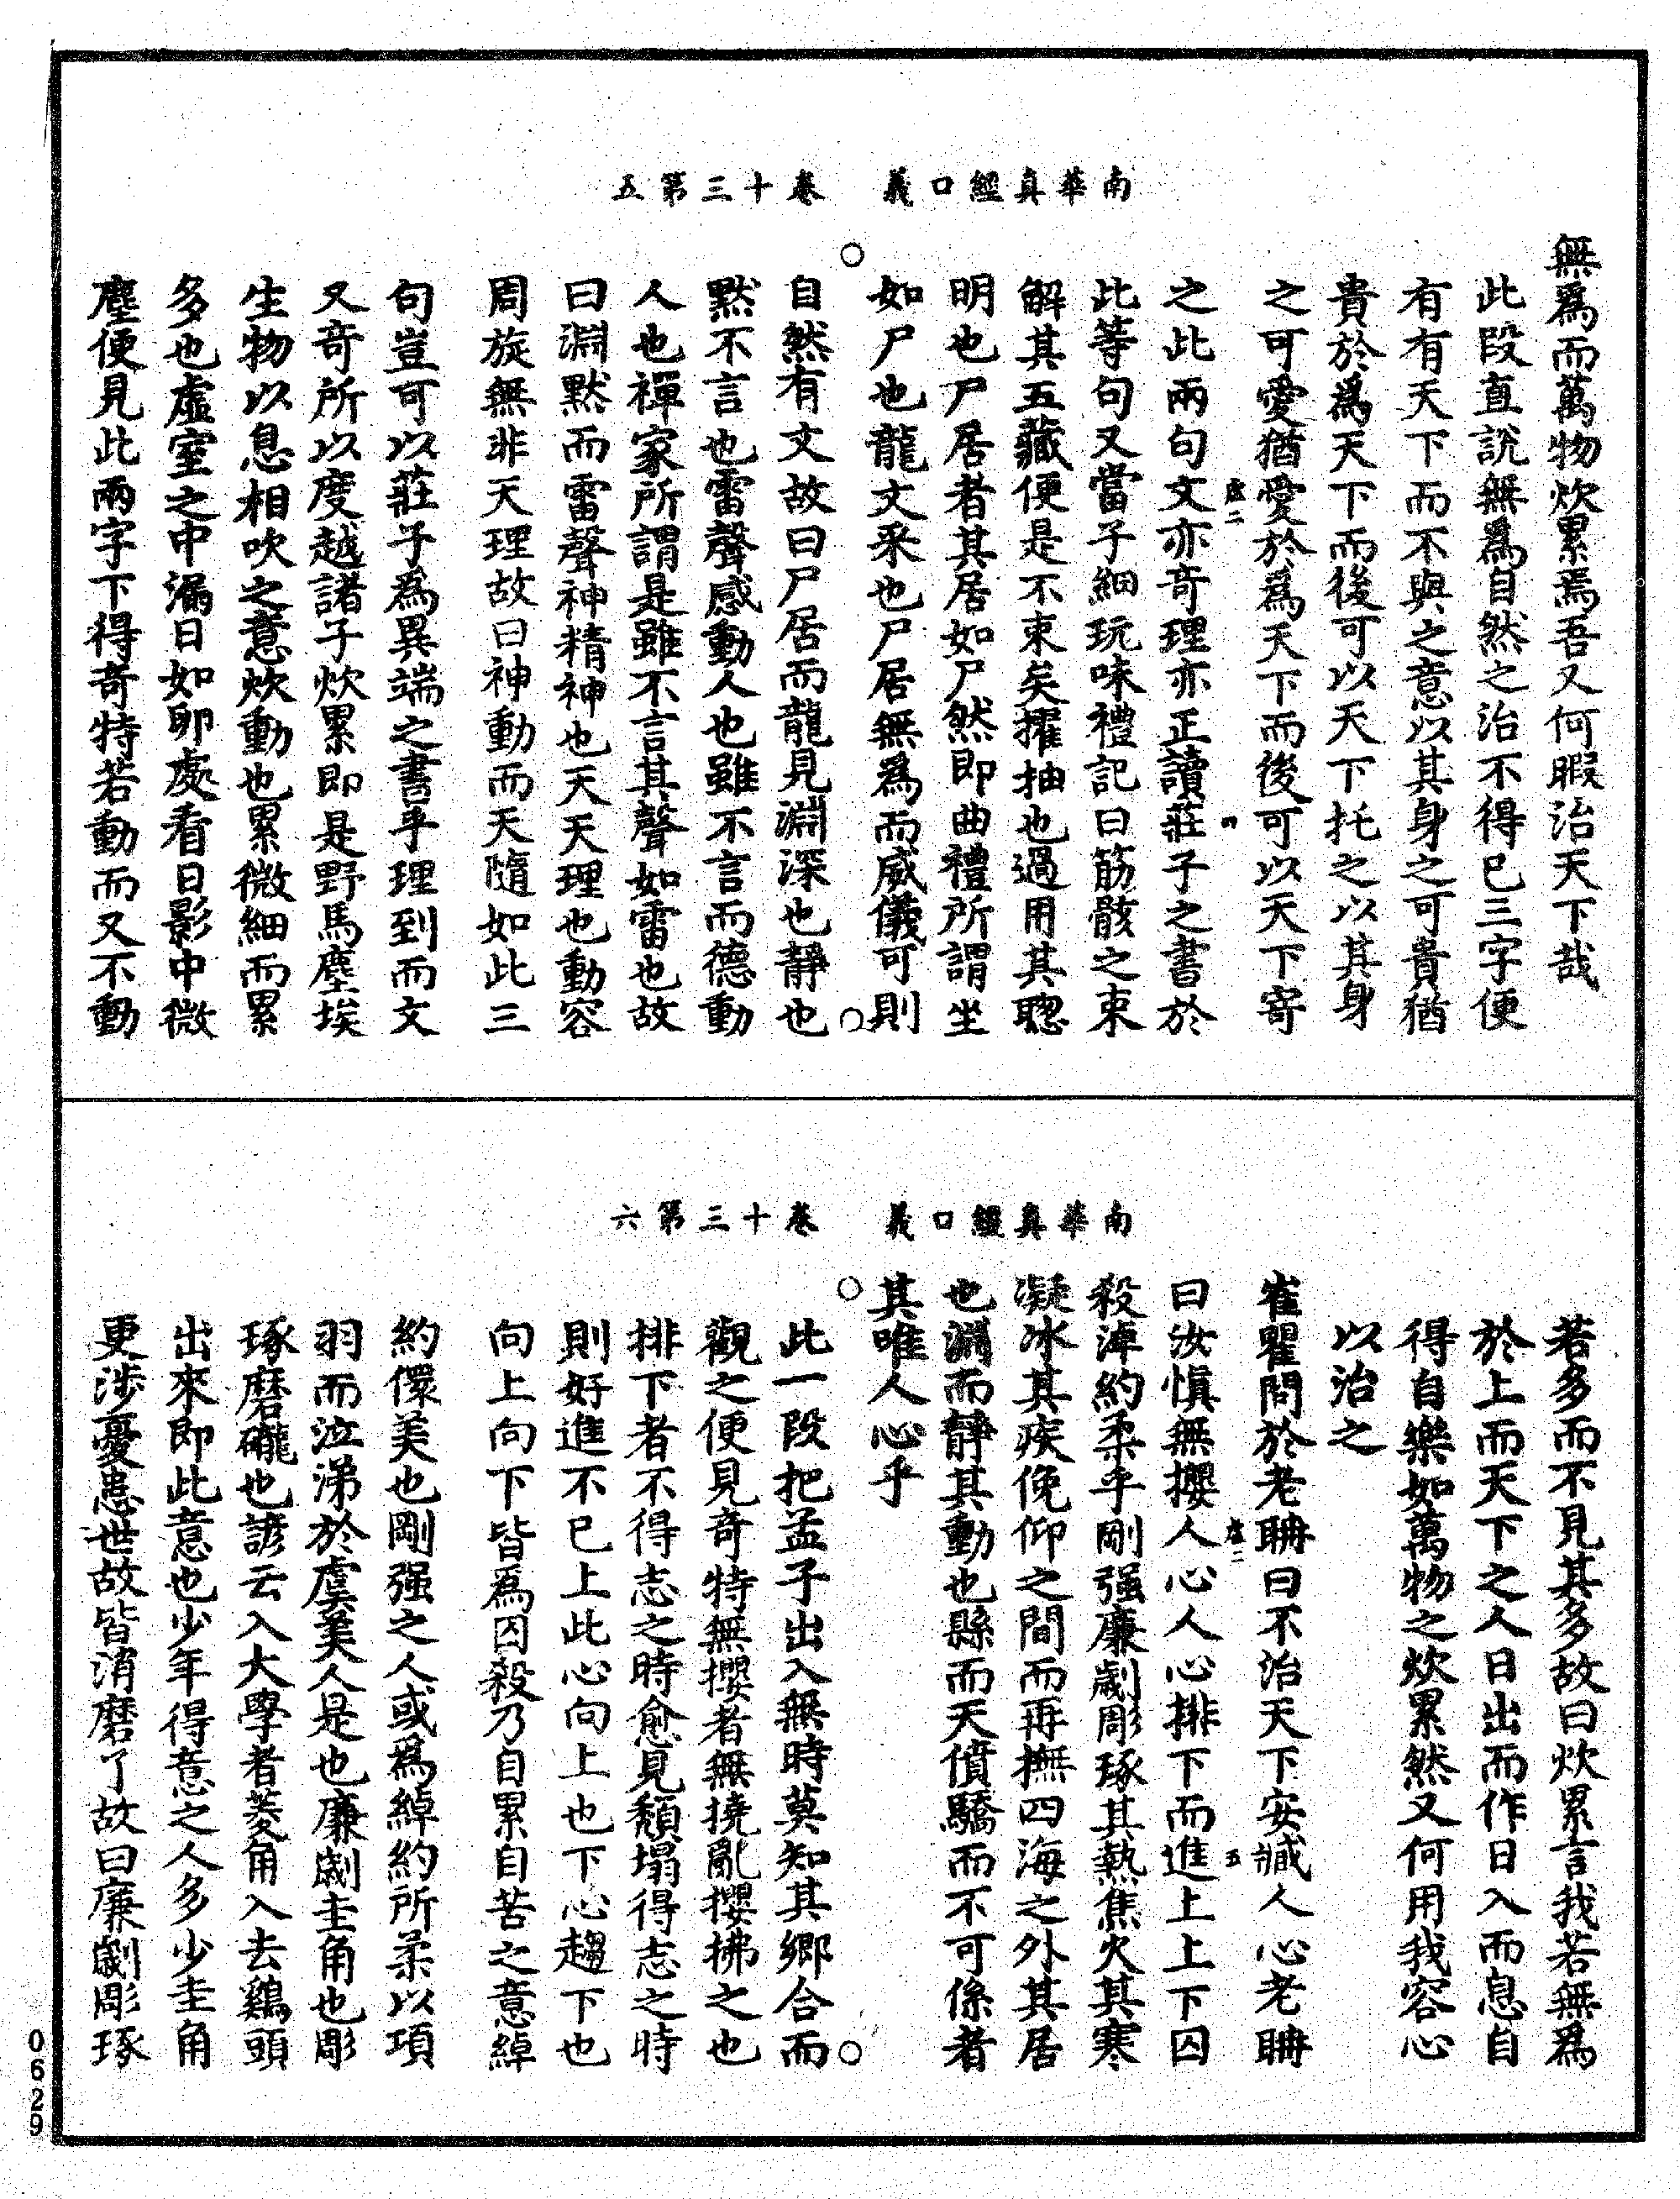 南華真經口義　卷十三第五
無爲而萬物炊累焉吾又何暇治天下哉
此段直說無爲自然之治不得已三字便
有有天下而不與之意以其身之可貴猶
貴於爲天下而後可以天下托之以其身
之可愛猶愛於爲天下而後可以天下寄
之此兩句文亦奇理亦正讀莊子之書於
此等句又當子細玩味禮記曰筋骸之束
解其五藏便是不束矣擢抽也過用其聰
明也尸居者其居如尸然即曲禮所謂坐
如尸也龍文采也尸居無爲而威儀可則
自然有文故曰尸居而龍見淵深也靜也
默不言也雷聲感動人也雖不言而德動
人也禪家所謂是雖不言其聲如雷也故
曰淵默而雷聲神精神也天天理也動容
周旋無非天理故曰神動而天隨如此三
句豈可以莊子爲異端之書乎理到而文
又奇所以度越諸子炊累即是野馬塵埃
生物以息相吹之意炊動也累微細而累
多也虛室之中漏日如卵處看日影中微
塵便見此兩字下得奇特若動而又不動
南華真經口義　卷十三第六
若多而不見其多故曰炊累言我若無爲
於上而天下之人日出而作日入而息自
得自樂如萬物之炊累然又何用我容心
以治之
崔瞿問於老聃曰不治天下安臧人心老聃
曰汝慎無攖人心人心排下而進上上下囚
殺淖約柔乎剛强廉劌彫琢其熱焦火其寒
凝冰其疾俛仰之間而再撫四海之外其居
也淵而靜其動也縣而天僨驕而不可係者
其唯人心乎
此一段把孟子出入無時莫知其鄉合而
觀之便見奇特無攖者無撓亂攖拂之也
排下者不得志之時愈見頹塌得志之時
則好進不已上此心向上也下心趨下也
向上向下皆爲囚殺乃自累自苦之意綽
約儇美也剛强之人或爲綽約所柔以項
羽而泣涕於虞美人是也廉劌圭角也彫
琢磨礲也諺云入大學者菱角入去鷄頭
出來即此意也少年得意之人多少圭角
更涉憂患世故皆消磨了故曰廉劌彫琢
0629